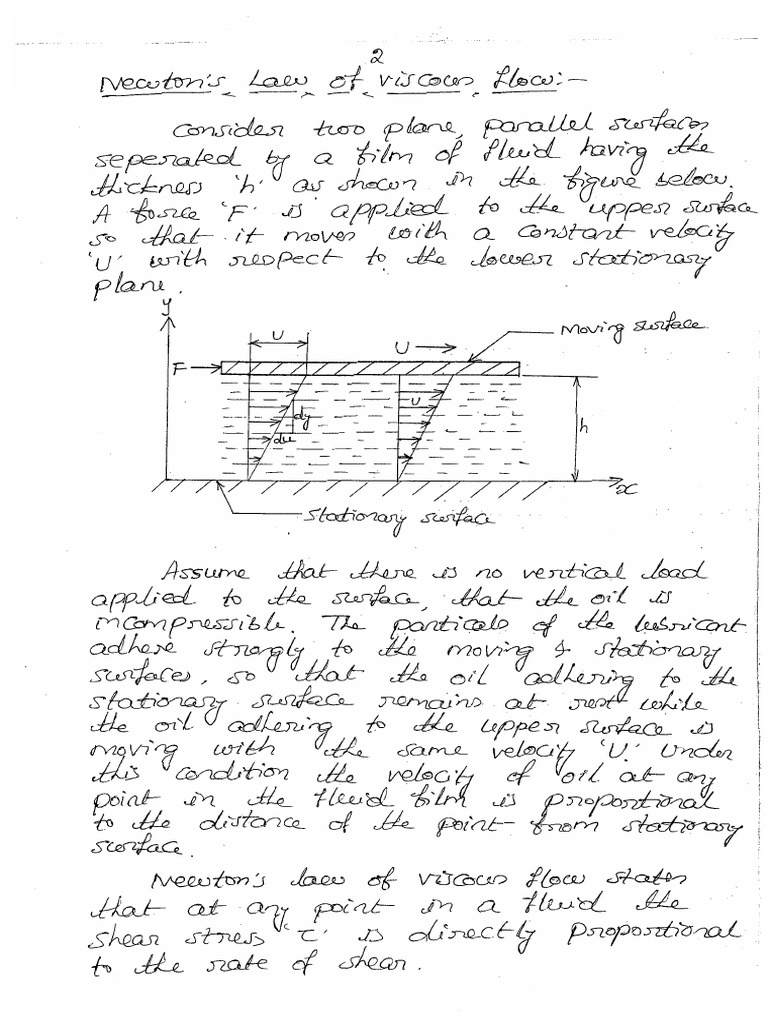 2
Newton's Law of viscous flow:-
Consider two plane, parallel surfaces
seperated by a film of fluid having the
thickness 'h' as shown in the figure below.
A force 'F' is applied to the upper surface
so that it moves with a constant velocity
'U' with respect to the lower stationary
plane.
y
U
U
Moving surface
F
U
dy
du
h
x
Stationary surface
Assume that there is no vertical load
applied to the surface, that the oil is
incompressible. The particals of the lubricant
adhere strongly to the moving & stationary
surfaces, so that the oil adhering to the
stationary surface remains at rest while
the oil adhering to the upper surface is
moving with the same velocity 'U'. Under
this condition the velocity of oil at any
point in the fluid film is proportional
to the distance of the point from stationary
surface.
Newton's law of viscous flow states
that at any point in a fluid the
shear stress 'τ' is directly proportional
to the rate of shear.